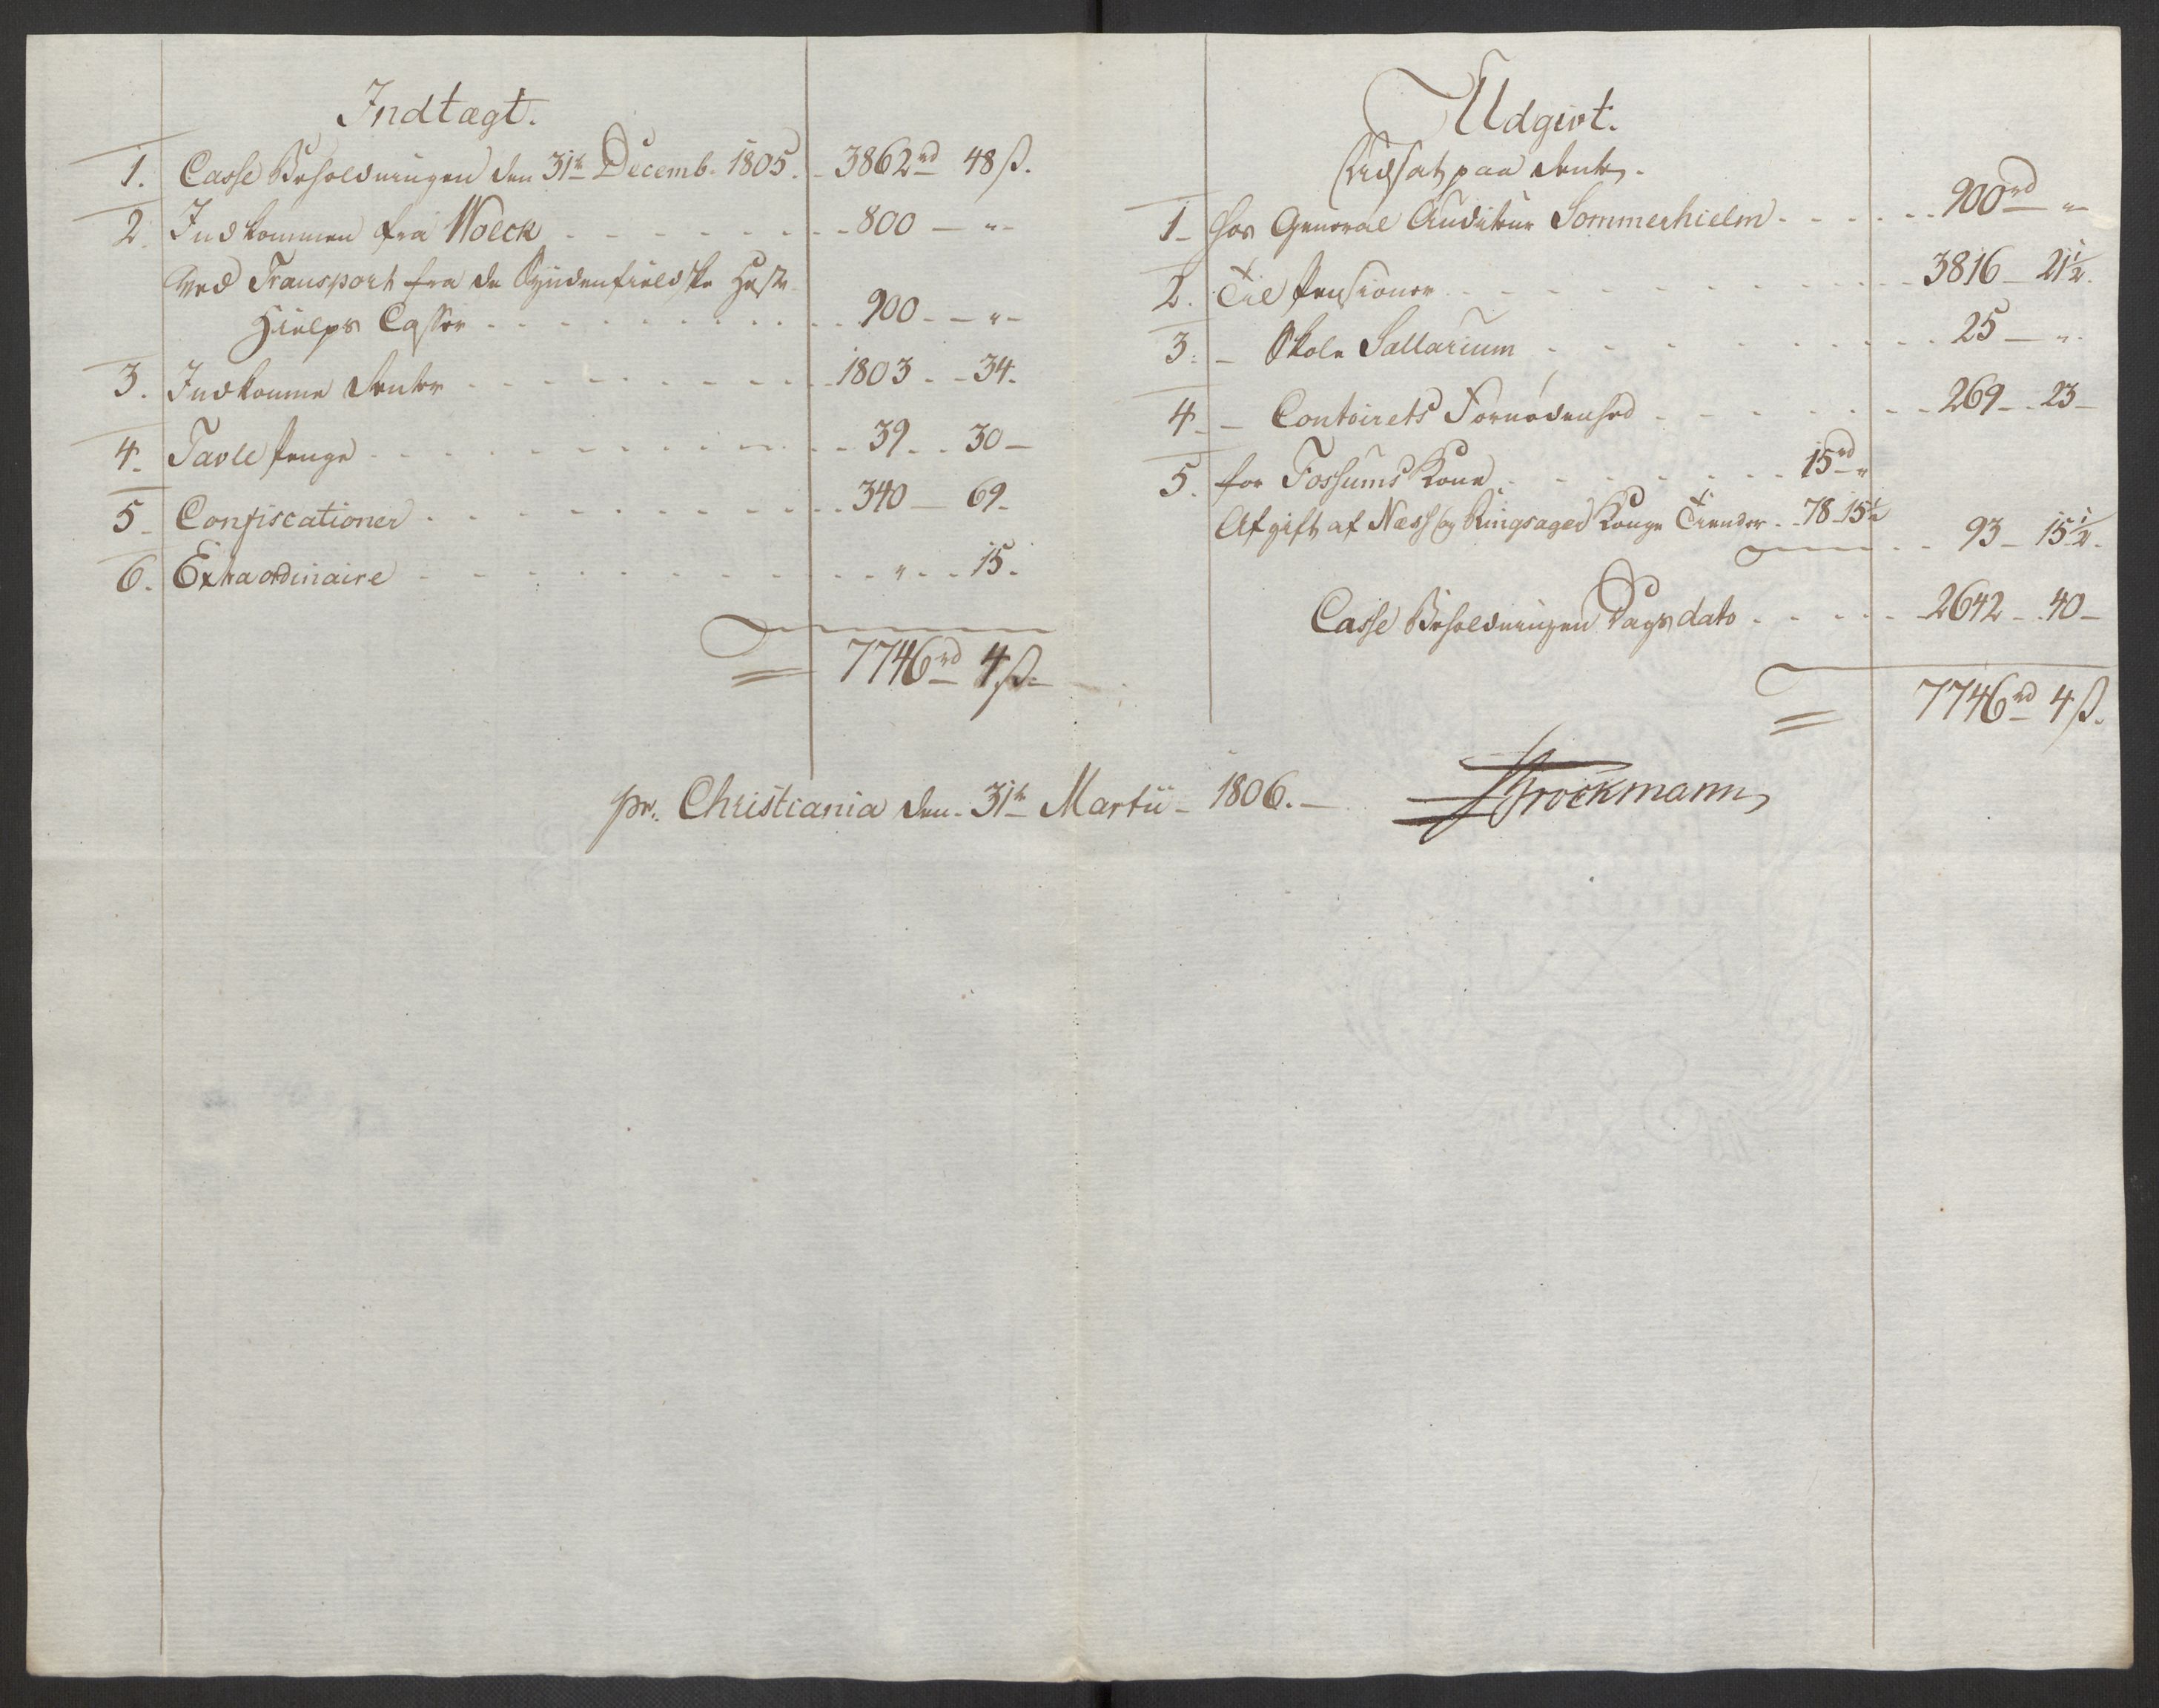 Indtægt.
1. Casse Beholdningen den 31te Decemb. 1805. 3862rd 48 ß.
2. Indkommen fra Woeck 800 - "
Ved Transport fra de Syndenfieldske Heste
Hielps Casser 900 - "
3. Indkomne Renter 1803 - 34.
4. Tavle Penge 39 - 30 -
5 Confiscationer 340 - 69.
6. Extraordinaire " - 15.
7746rd 4 ß.
Udgivt.
Udsat paa Renter.
1 - hos General Auditeur Sommerhielm 900rd "
2. Til Pensioner 3816 - 21½.
3. - Skole Sallarium 25 - "
4 - - Contoirets Fornødenhed 269 - 23 -
5. for Fossums Kone 15rd "
Afgift af Næss og Ringsager Konge Tiender 78 - 15½ 93 - 15½.
Casse Beholdningen Dags dato 2642 - 40 -
7746rd 4 ß.
pr. Christiania den 31te Martii 1806. - Brockmann